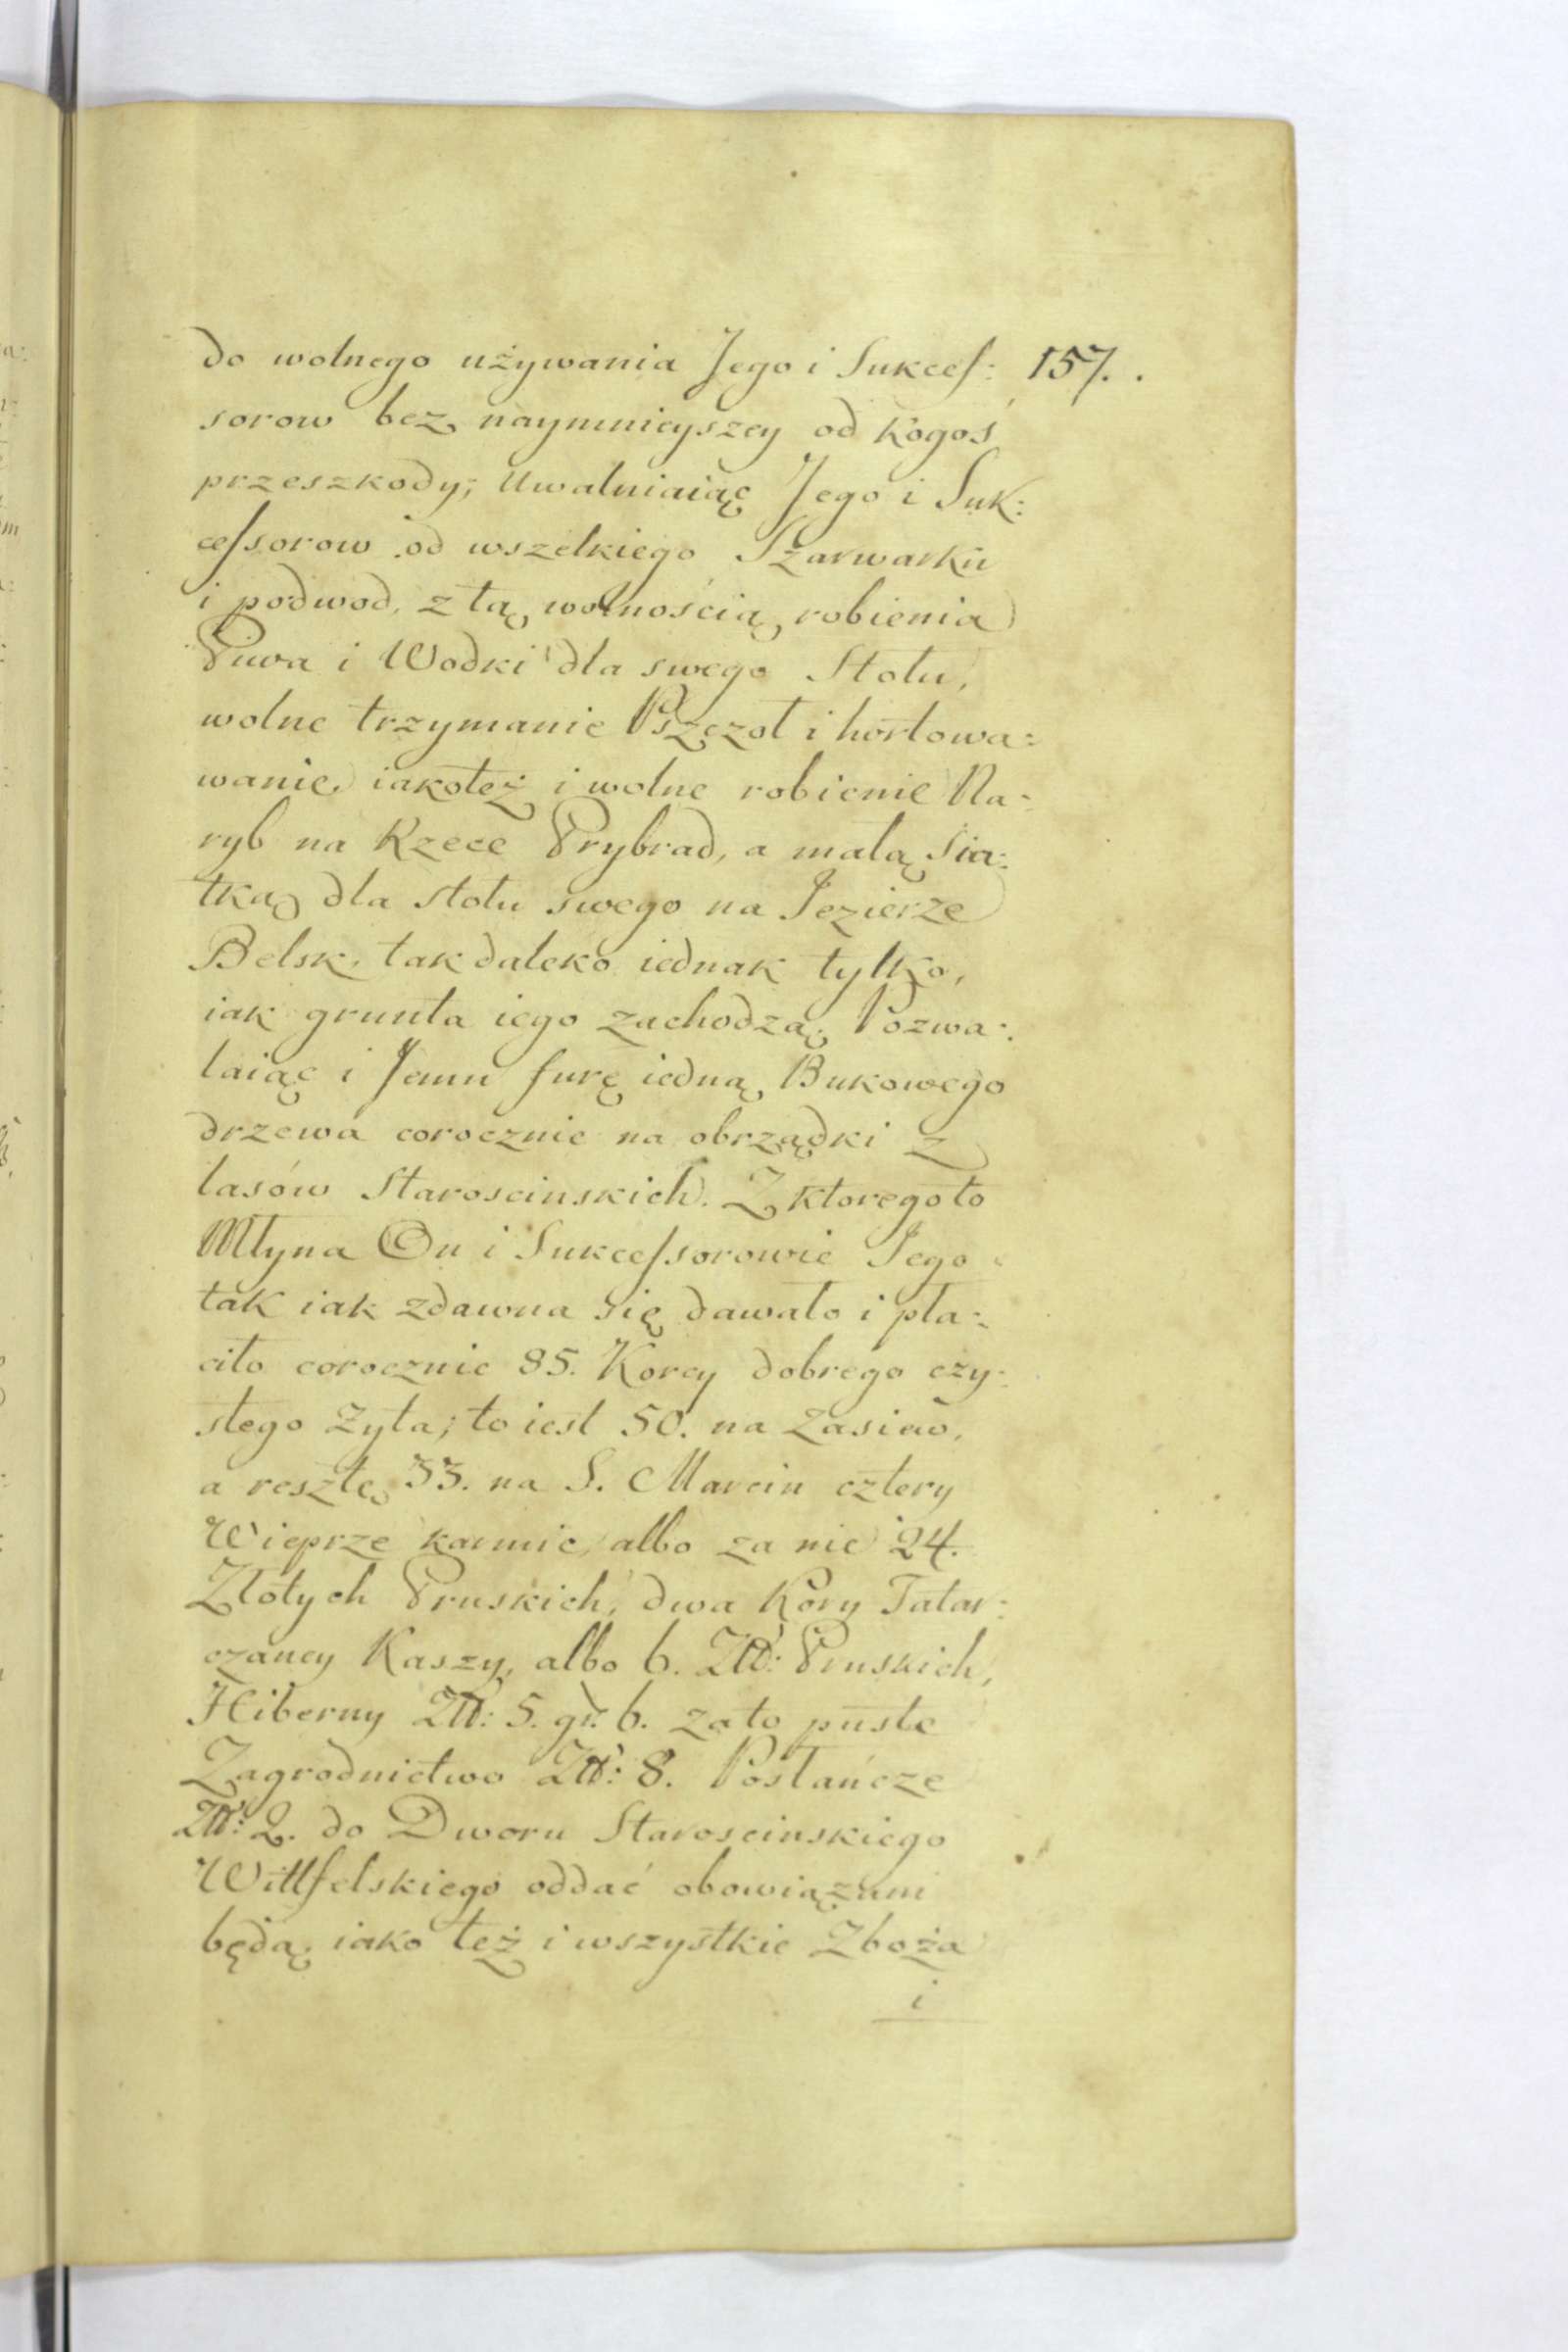 do wolnego używania Jego i Sukceſ: 157.
sorow bez naymnieyszey od kogoś
przeszkody; Uwalniaiąc Jego i Suk:
ceſsorow od wszelkiego Szarwarku
i podwod, z tą wolnością robienia
Piwa i Wodki dla swego Stołu,
wolne trzymanie Pszczoł i hortowa:
wanie, iakoteż i wolne robienie Na:
ryb na Rzece Prybrad, a małą Sia:
tką dla stołu swego na Jezierze
Belsk, tak daleko iednak tylko,
iak grunta iego zachodzą. Pozwa:
laiąc i Jemu furę iedną Bukowego
drzewa corocznie na obrządki z
lasów Staroscinskich. Z ktorego to
Młyna On i Sukceſsorowie Jego
tak iak zdawna się dawało i pła:
ciło corocznie 85. Korcy dobrego czy:
stego Zyta; to iest 50. na Zasiew,
a resztę 33. na S. Marcin cztery
Wieprze karmic, albo za nie 24.
Złotych Pruskich, dwa Kory Tatar:
czaney Kaszy, albo 6. Zł: Pruskich,
Hiberny Zł: 5. gr. 6. za to puste
Zagrodnictwo Zł: 8. Posłańcze
Zł: 2. do Dworu Staroscinskiego
Wittfelskiego oddać obowiązani
będą, iako też i wszystkie Zboża
i